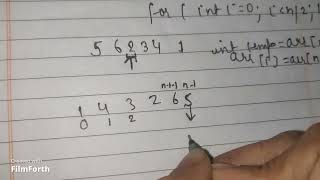 for ( int i=0; i<n/2; i
5 6 2 3 4 1
int temp = arr[
arr[i] = arr[n
n-1-1 n-1
1 4 3 2 6 5
0 1 2
Created with
FilmForth